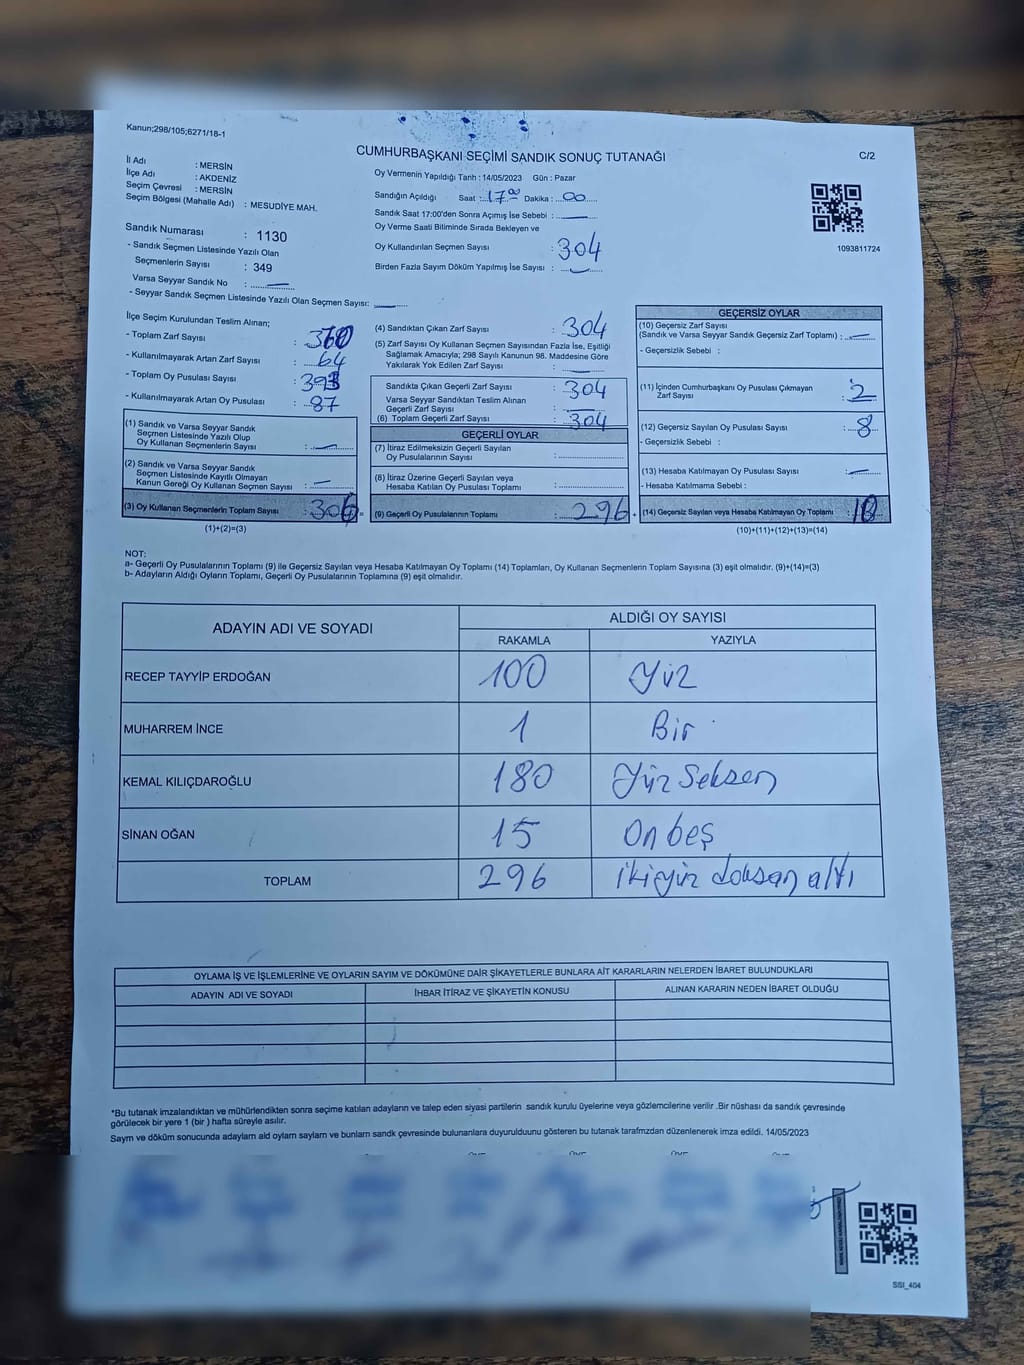 Kanun;298/105;6271/18-1
CUMHURBAŞKANI SEÇİMİ SANDIK SONUÇ TUTANAĞI
C/2
İl Adı : MERSİN
İlçe Adı : AKDENİZ
Seçim Çevresi : MERSİN
Seçim Bölgesi (Mahalle Adı) : MESUDİYE MAH.
Sandık Numarası : 1130
- Sandık Seçmen Listesinde Yazılı Olan
Seçmenlerin Sayısı : 349
Varsa Seyyar Sandık No :
- Seyyar Sandık Seçmen Listesinde Yazılı Olan Seçmen Sayısı:
Oy Vermenin Yapıldığı Tarih : 14/05/2023 Gün : Pazar
Sandığın Açıldığı Saat : 17 00 Dakika : 00
Sandık Saat 17:00'den Sonra Açımış İse Sebebi :
Oy Verme Saati Bitiminde Sırada Bekleyen ve
Oy Kullandırılan Seçmen Sayısı : 304
Birden Fazla Sayım Döküm Yapılmış İse Sayısı :
1093811724
İlçe Seçim Kurulundan Teslim Alınan;
- Toplam Zarf Sayısı :
- Kullanılmayarak Artan Zarf Sayısı : 64
- Toplam Oy Pusulası Sayısı : 393
- Kullanılmayarak Artan Oy Pusulası : 87
(1) Sandık ve Varsa Seyyar Sandık
Seçmen Listesinde Yazılı Olup
Oy Kullanan Seçmenlerin Sayısı :
(2) Sandık ve Varsa Seyyar Sandık
Seçmen Listesinde Kayıtlı Olmayan
Kanun Gereği Oy Kullanan Seçmen Sayısı :
(3) Oy Kullanan Seçmenlerin Toplam Sayısı : 306 =
(1)+(2)=(3)
(4) Sandıktan Çıkan Zarf Sayısı : 304
(5) Zarf Sayısı Oy Kullanan Seçmen Sayısından Fazla İse, Eşitliği
Sağlamak Amacıyla; 298 Sayılı Kanunun 98. Maddesine Göre
Yakılarak Yok Edilen Zarf Sayısı :
Sandıkta Çıkan Geçerli Zarf Sayısı : 304
Varsa Seyyar Sandıktan Teslim Alınan
Geçerli Zarf Sayısı :
(6) Toplam Geçerli Zarf Sayısı : 304
GEÇERLİ OYLAR
(7) İtiraz Edilmeksizin Geçerli Sayılan
Oy Pusulalarının Sayısı :
(8) İtiraz Üzerine Geçerli Sayılan veya
Hesaba Katılan Oy Pusulası Toplamı :
(9) Geçerli Oy Pusulalarının Toplamı : 296 +
GEÇERSİZ OYLAR
(10) Geçersiz Zarf Sayısı
(Sandık ve Varsa Seyyar Sandık Geçersiz Zarf Toplamı) :
- Geçersizlik Sebebi :
(11) İçinden Cumhurbaşkanı Oy Pusulası Çıkmayan
Zarf Sayısı : 2
(12) Geçersiz Sayılan Oy Pusulası Sayısı : 8
- Geçersizlik Sebebi :
(13) Hesaba Katılmayan Oy Pusulası Sayısı :
- Hesaba Katılmama Sebebi :
(14) Geçersiz Sayılan veya Hesaba Katılmayan Oy Toplamı : 10
(10)+(11)+(12)+(13)=(14)
NOT:
a- Geçerli Oy Pusulalarının Toplamı (9) ile Geçersiz Sayılan veya Hesaba Katılmayan Oy Toplamı (14) Toplamları, Oy Kullanan Seçmenlerin Toplam Sayısına (3) eşit olmalıdır. (9)+(14)=(3)
b- Adayların Aldığı Oyların Toplamı, Geçerli Oy Pusulalarının Toplamına (9) eşit olmalıdır.
ADAYIN ADI VE SOYADI
ALDIĞI OY SAYISI
RAKAMLA YAZIYLA
RECEP TAYYİP ERDOĞAN 100 Yüz
MUHARREM İNCE 1 Bir
KEMAL KILIÇDAROĞLU 180 Yüz Seksen
SİNAN OĞAN 15 On beş
TOPLAM 296 ikiyüz doksan altı
OYLAMA İŞ VE İŞLEMLERİNE VE OYLARIN SAYIM VE DÖKÜMÜNE DAİR ŞİKAYETLERLE BUNLARA AİT KARARLARIN NELERDEN İBARET BULUNDUKLARI
ADAYIN ADI VE SOYADI İHBAR İTİRAZ VE ŞİKAYETİN KONUSU ALINAN KARARIN NEDEN İBARET OLDUĞU
*Bu tutanak imzalandıktan ve mühürlendikten sonra seçime katılan adayların ve talep eden siyasi partilerin sandık kurulu üyelerine veya gözlemcilerine verilir .Bir nüshası da sandık çevresinde
görülecek bir yere 1 (bir ) hafta süreyle asılır.
Sayım ve döküm sonucunda adayların ald oyların sayıları ve bunların sandk çevresinde bulunanlara duyurulduunu gösteren bu tutanak tarafmzdan düzenlenerek imza edildi. 14/05/2023
SSI_404